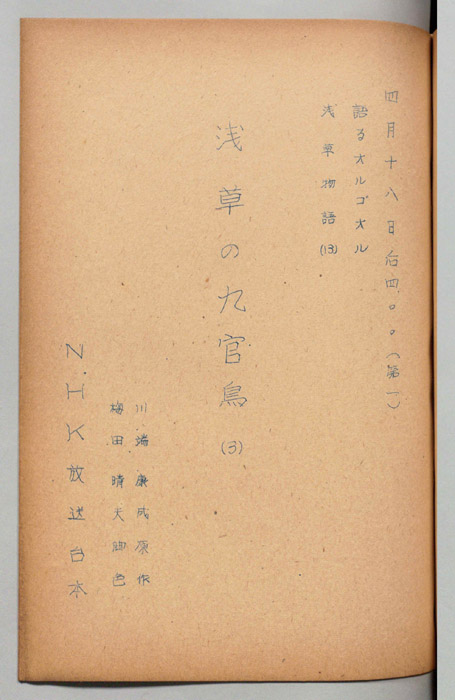 四月十八日后四〇〇(第一)
語るオルゴオル
浅草物語(13)
浅草の九官鳥
(3)
川端康成原作
梅田晴夫脚色
NHK放送台本